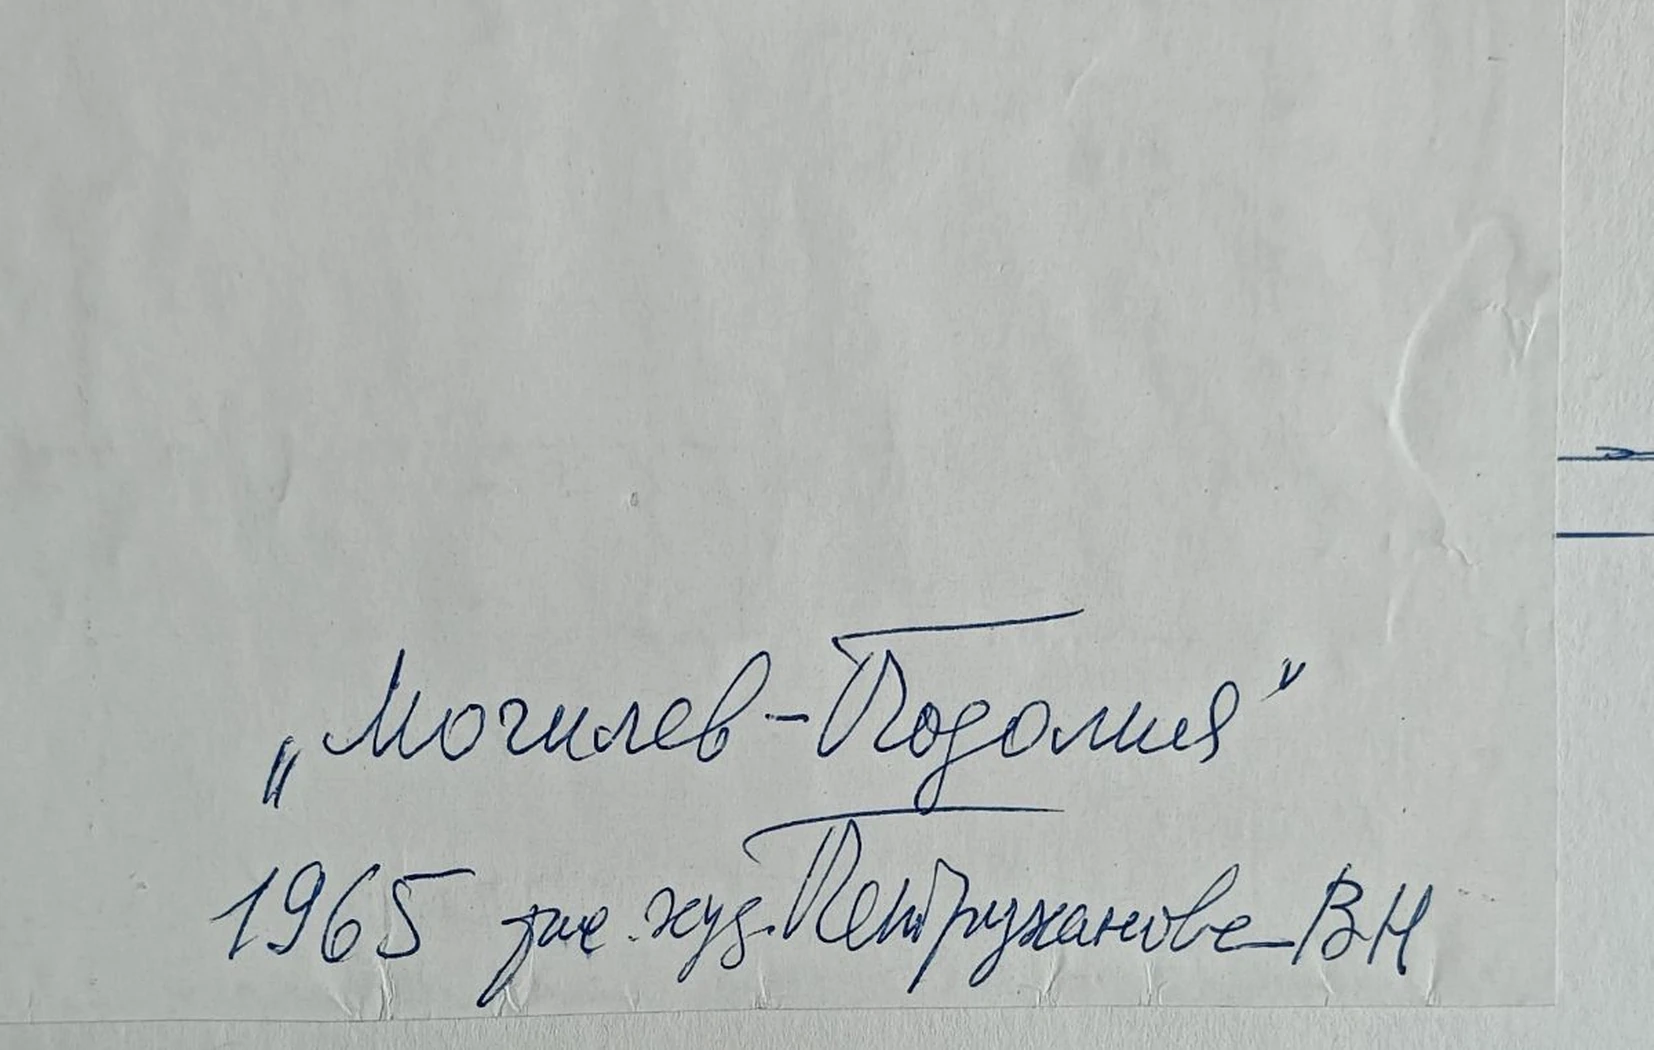 „Могилев-Подолия"
1965 рис. худ. Петружанова В Н